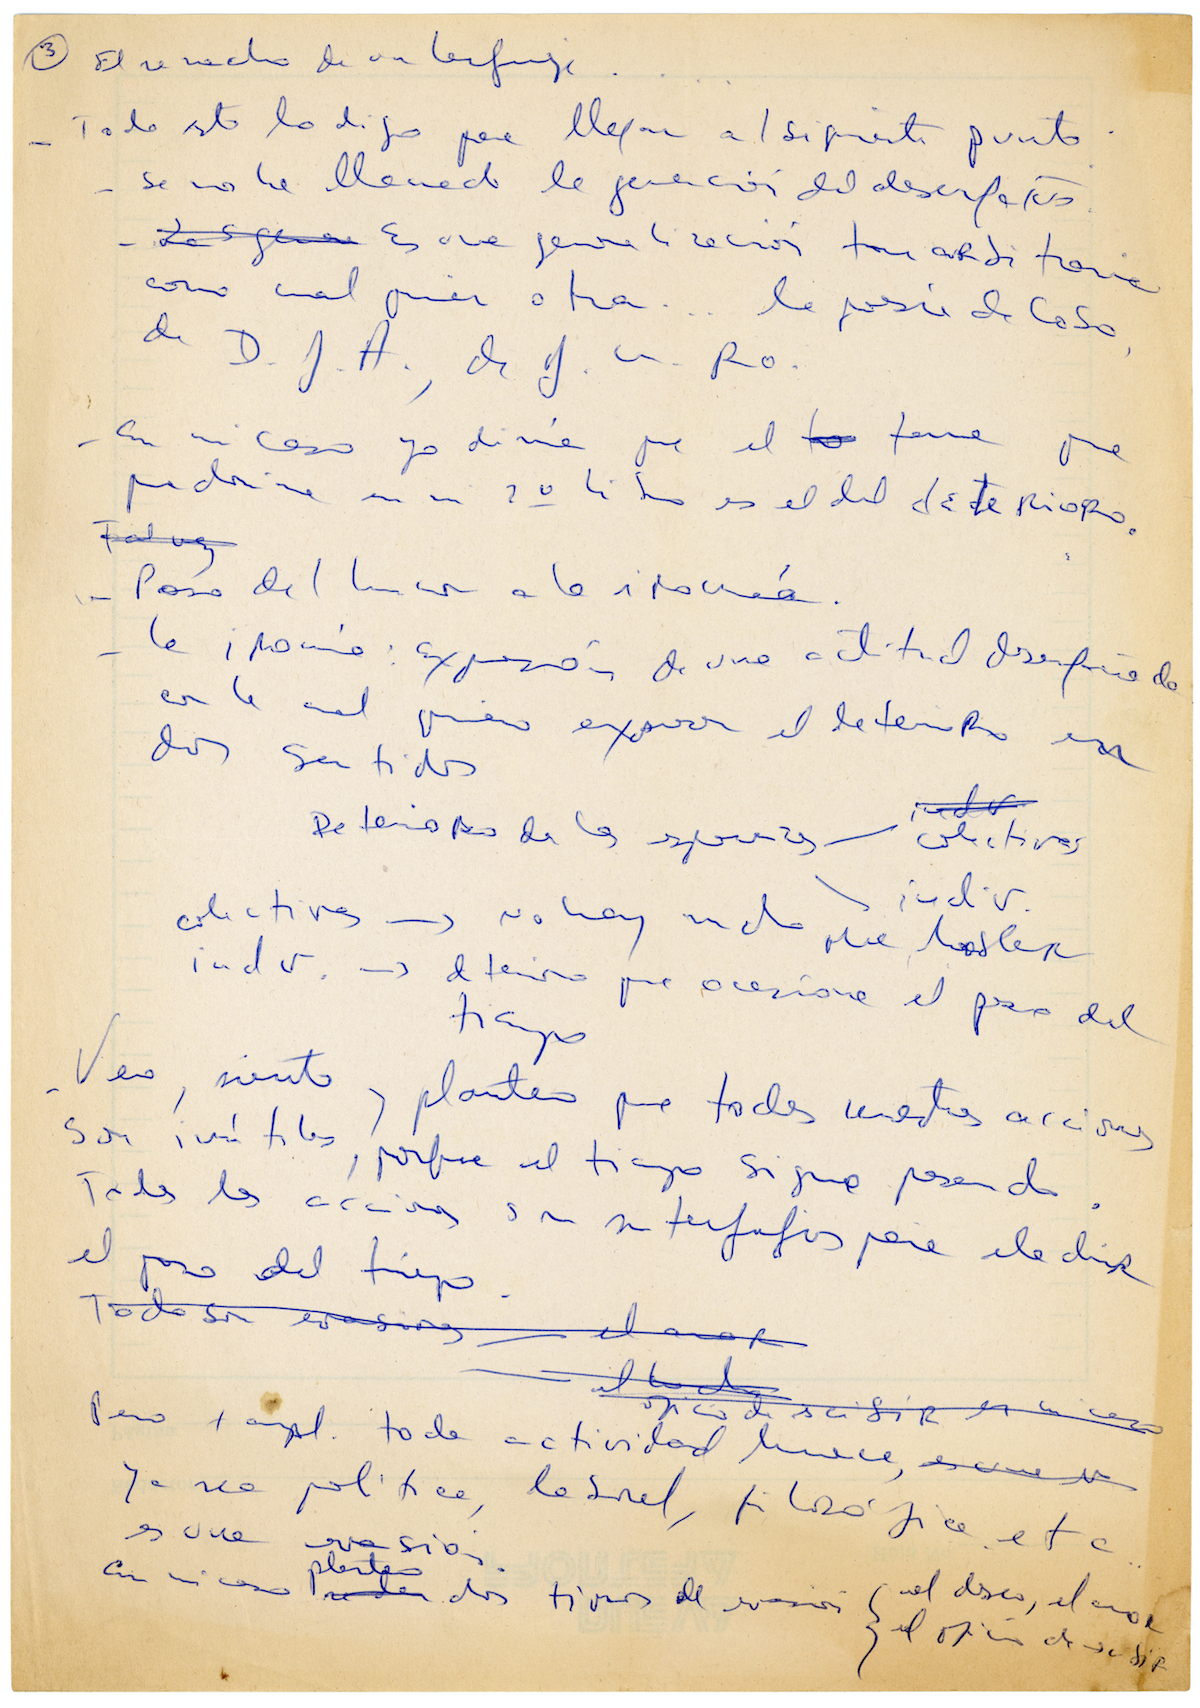 3 El rechazo de un lenguaje . . . .
- Todo esto lo digo para llegar al siguiente punto.
- Se nos ha llamado la generación del desengaño.
- Es una generalización tan arbitraria
como cualquier otra... la poesía de Cobo,
de D. J. A., de J. M. Ro.
- En mi caso yo diría que el tema que
predomina en mi 2º libro es el del deterioro.
Tal vez
- Paso del humor a la ironía.
- La ironía: expresión de una actitud desengañada
con la cual quiero expresar el deterioro en
dos sentidos
indiv.
Deterioro de las esperanzas — colectivas
indiv.
colectivas → no hay mucho que hablar
indiv. → deterioro que ocasiona el paso del
tiempo
- Veo, siento y planteo que todas nuestras acciones
son inútiles, porque el tiempo sigue pasando.
Todas las acciones son subterfugios para eludir
el paso del tiempo.
Todo son evasiones — el amor
oficio de escribir en mi caso
Pero toda actividad humana,
ya sea política, laboral, filosófica etc..
es una evasión.
planteo
En mi caso dos tipos de evasión { el deseo, el amor
{ el oficio de escribir